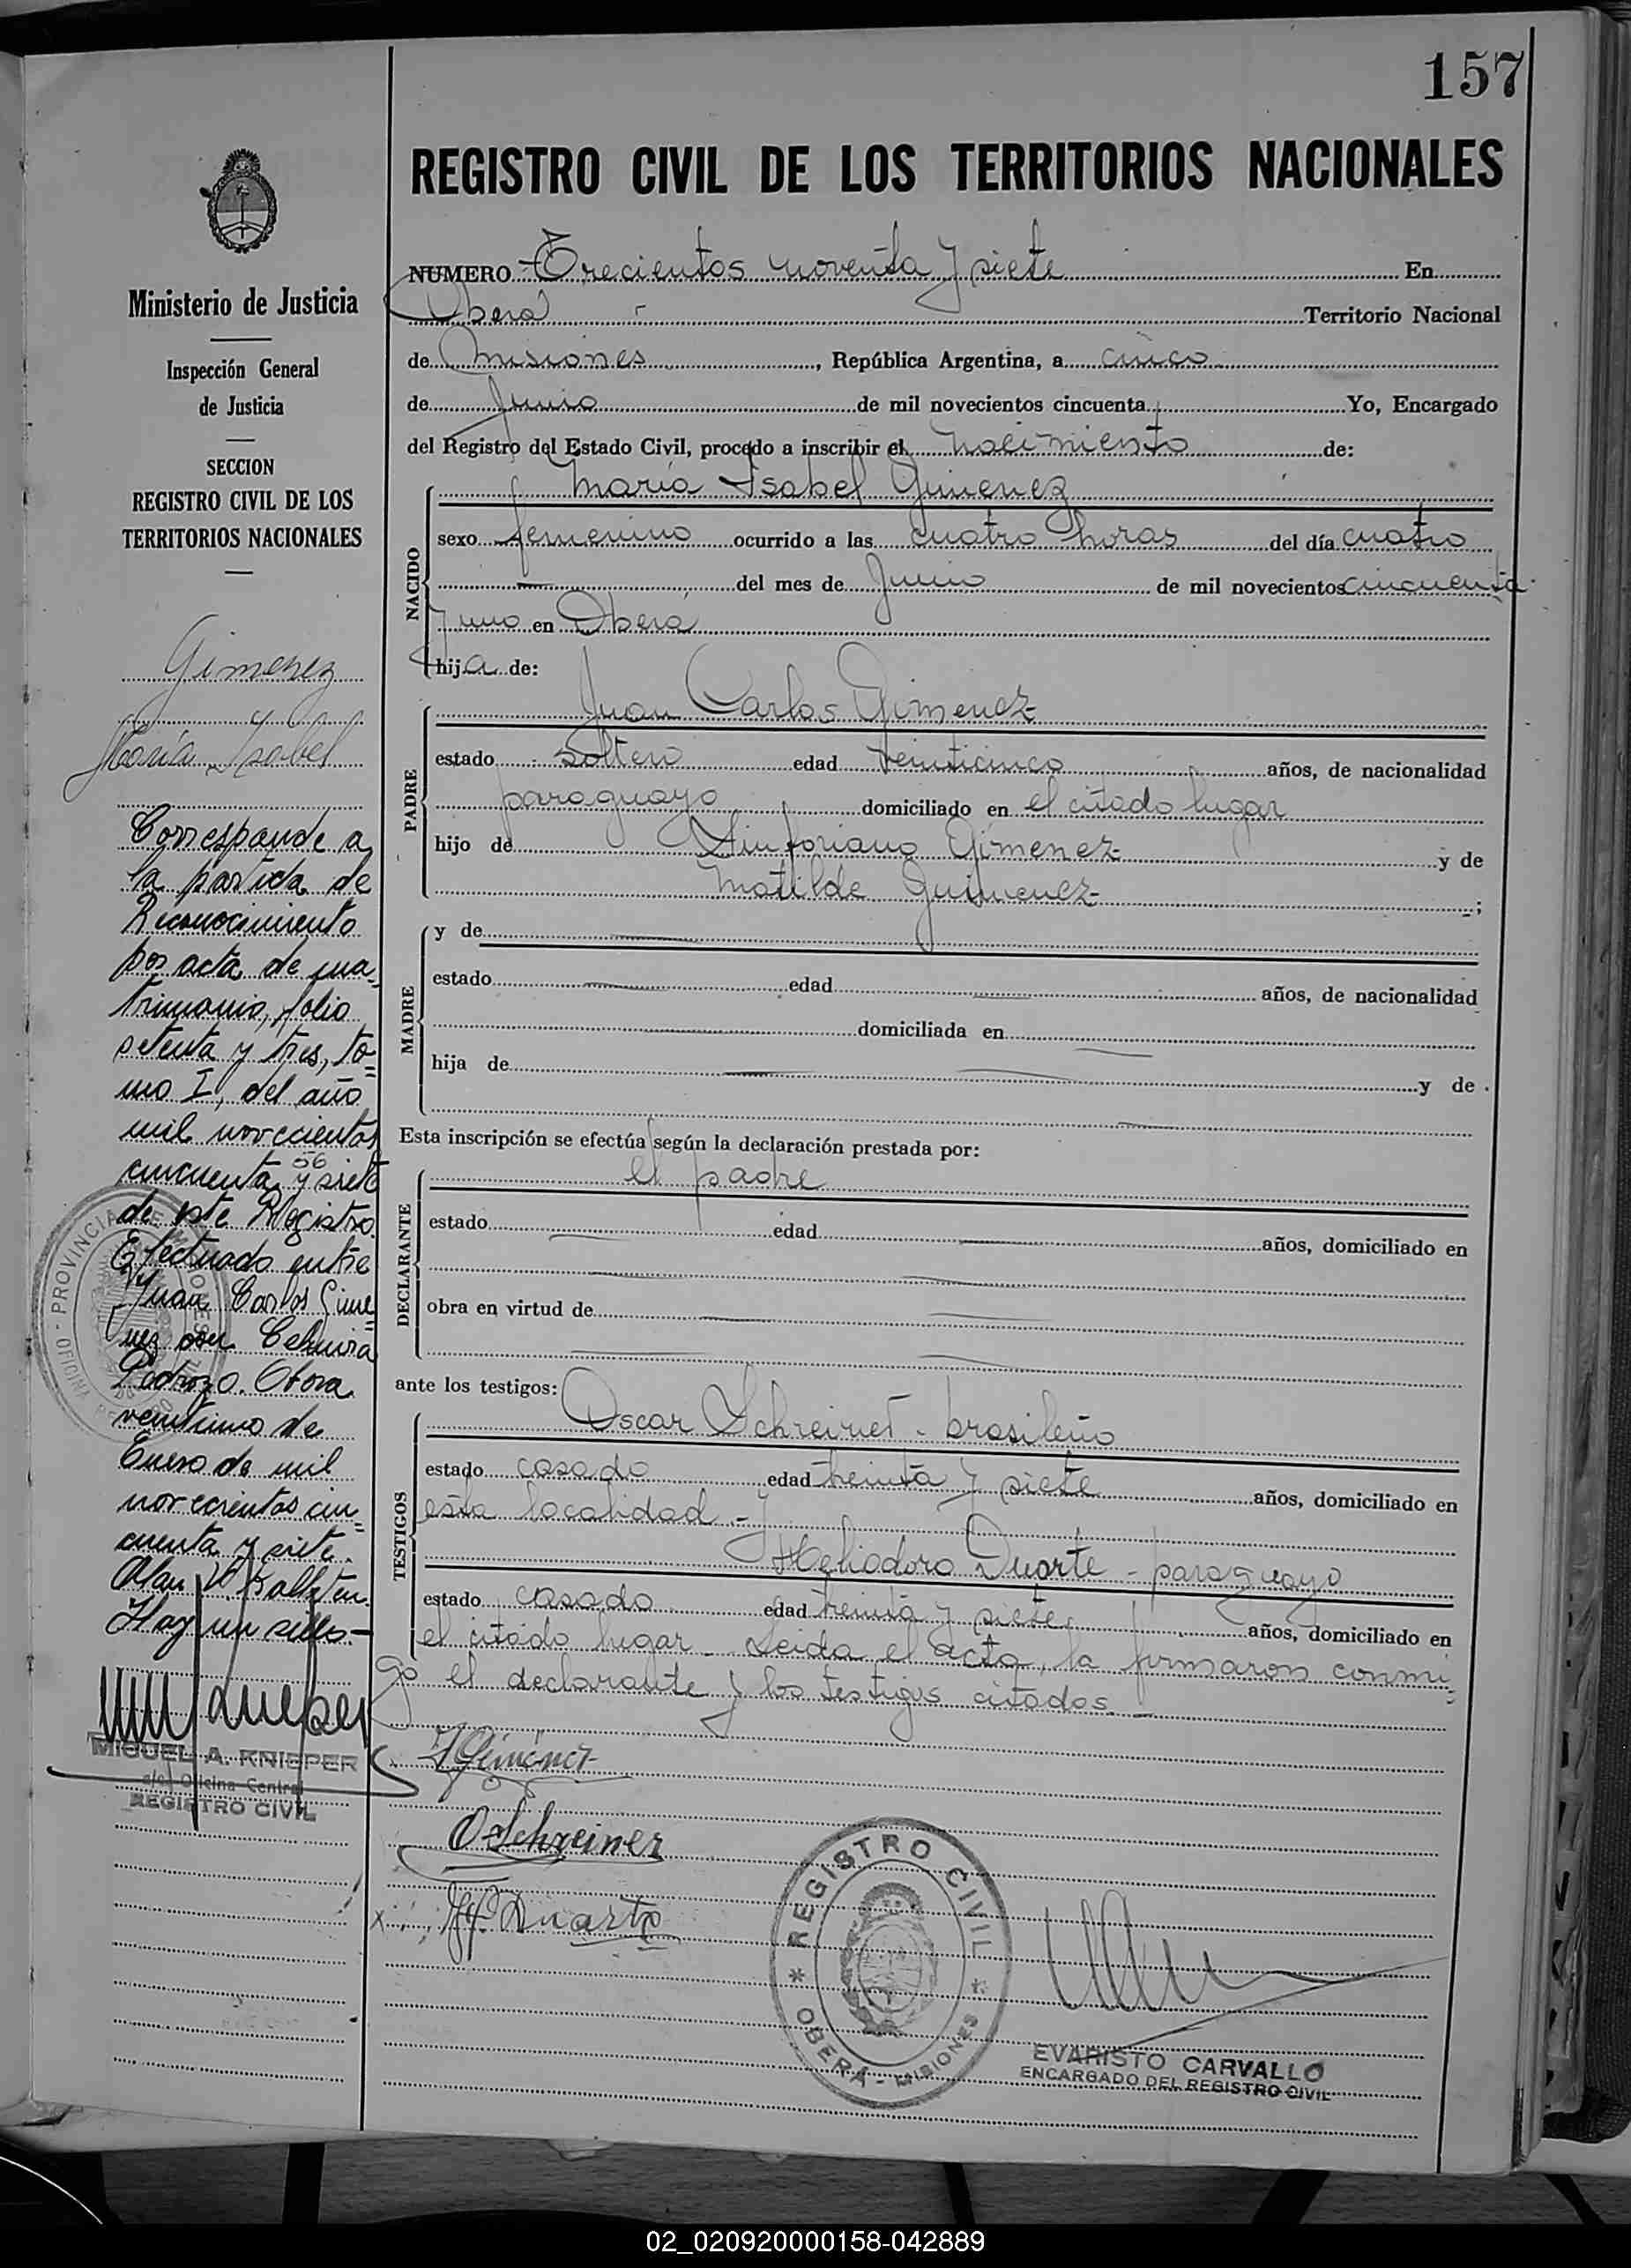 157
REGISTRO CIVIL DE LOS TERRITORIOS NACIONALES
Ministerio de Justicia
Inspección General
de Justicia
SECCION
REGISTRO CIVIL DE LOS
TERRITORIOS NACIONALES
Gimenez
María Isabel
Corresponde a
la partida de
Reconocimiento
por acta de ma=
trimonio, folio
setenta y tres, to=
mo I, del año
mil novecientos
56
cincuenta y siete
de este Registro.
Efectuado entre
Juan Carlos Gime=
nez con Celmira
Pedrozo. Obera
veintiuno de
Enero de mil
novecientos cin=
cuenta y siete.
Hay un sello.-
MIGUEL A. KNIEPER
a/c Oficina Central
REGISTRO CIVIL
NUMERO Trecientos noventa y siete En
Oberá Territorio Nacional
de Misiones, República Argentina, a cinco
de Junio de mil novecientos cincuenta Yo, Encargado
del Registro del Estado Civil, procedo a inscribir el nacimiento de:
NACIDO
María Isabel Gimenez
sexo femenino ocurrido a las cuatro horas del día cuatro
del mes de Junio de mil novecientos cincuenta
y uno en Oberá
hija de:
PADRE
Juan Carlos Gimenez
estado soltero edad veinticinco años, de nacionalidad
paraguayo domiciliado en el citado lugar
hijo de Sinforiano Gimenez y de
Matilde Guimenez ;
MADRE
y de
estado edad años, de nacionalidad
domiciliada en
hija de y de
Esta inscripción se efectúa según la declaración prestada por:
DECLARANTE
el padre
estado edad años, domiciliado en
obra en virtud de
ante los testigos:
TESTIGOS
Oscar Schreiner - brasileño
estado casado edad treinta y siete años, domiciliado en
esta localidad - y
Heliodoro Duarte - paraguayo
estado casado edad treinta y siete años, domiciliado en
el citado lugar - Leida el acta, la firmaron conmi=
go el declarante y los testigos citados. -
J Gimenez
O Schreiner
H Duarte
REGISTRO CIVIL
OBERÁ - MISIONES
EVARISTO CARVALLO
ENCARGADO DEL REGISTRO CIVIL
02_020920000158-042889